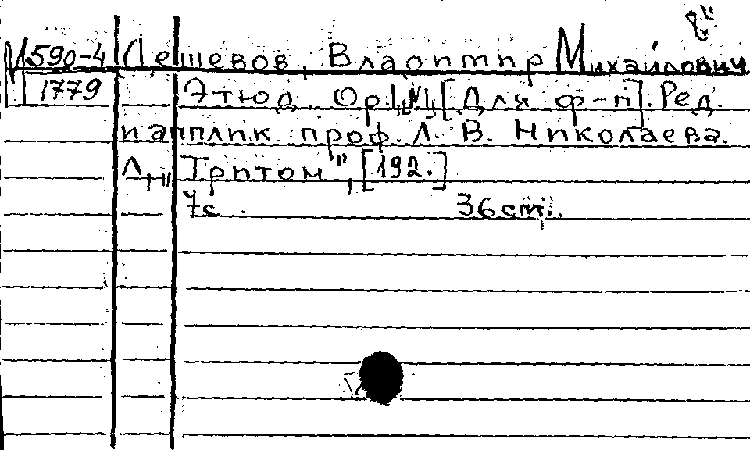 М590-4 Дешевов, Владимир Михайлович
1779 Этюд. Op. [Для ф-п]. Ред.
и апплик. проф. Л. В. Николаева.
Л., "Тритон", [192.]
7с. 36 cm.